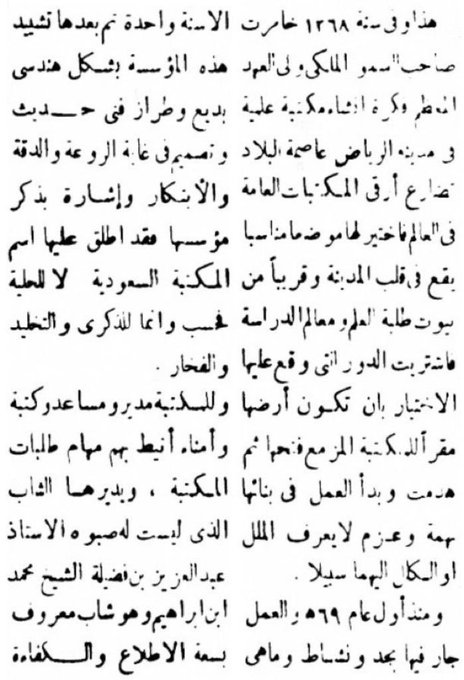 هذا وفي سنة ١٣٦٨ خامرت
صاحب السمو الملكي ولي العهد
المعظم فكرة انشاء مكتبة علمية
في مدينة الرياض عاصمة البلاد
تضارع أرقى المكتبات العامة
في العالم فاختير لها موضعا مناسبا
يقع في قلب المدينة وقريباً من
بيوت طلبة العلم ومعالم الدراسة
فاشتريت الدور التى وقع عليها
الاختيار بان تكون أرضها
مقراً للمكتبة المزمع فتحها ثم
هدمت وبدأ العمل في بنائها
بهمة وعزم لا يعرف الملل
او الكلل اليهما سبيلا .
ومنذ أول عام ٥٦٩ والعمل
جار فيها بجد ونشاط وماهى
الاسنة واحدة تم بعدها تشييد
هذه المؤسسة بشكل هندسى
بديع وطراز فني حديث
وتصميم في غاية الروعة والدقة
والأبتكار وإشارة بذكر
مؤسسها فقد اطلق عليها اسم
المكتبة السعودية لا للحلية
فحسب وانما للذكرى والتخليد
والفخار .
وللمكتبة مدير ومساعد وكتبة
وأمناء أنيط بهم مهام طلبات
المكتبة ، ويديرها الشاب
الذى ليست له صبوه الاستاذ
عبدالعزيز بن فضيلة الشيخ محمد
ابن ابراهيم وهو شاب معروف
بسعة الاطلاع والكفاءة